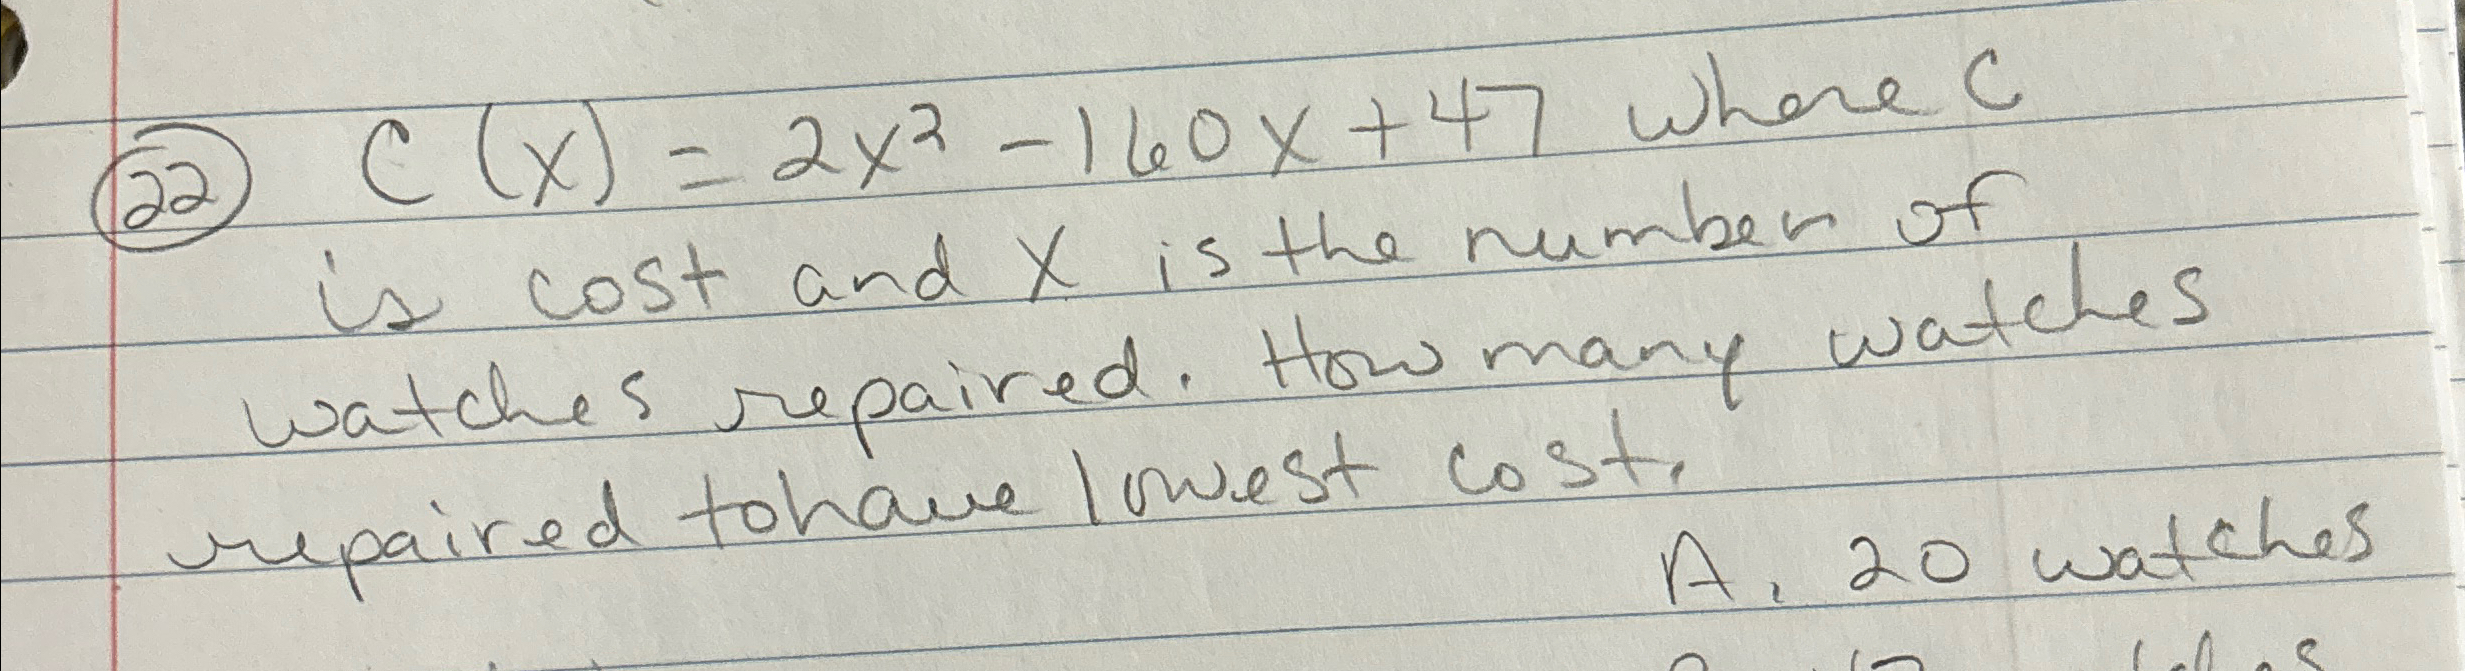 22 C(x) = 2x² - 160x + 47 where C
is cost and X is the number of
watches repaired. How many watches
repaired to have lowest cost.
A. 20 watches